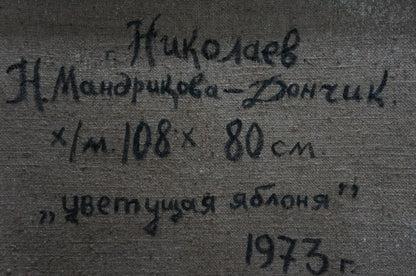 г. Николаев
Н. Мандрикова-Дончик.
х/м. 108 х 80 см.
„цветущая яблоня"
1973 г.